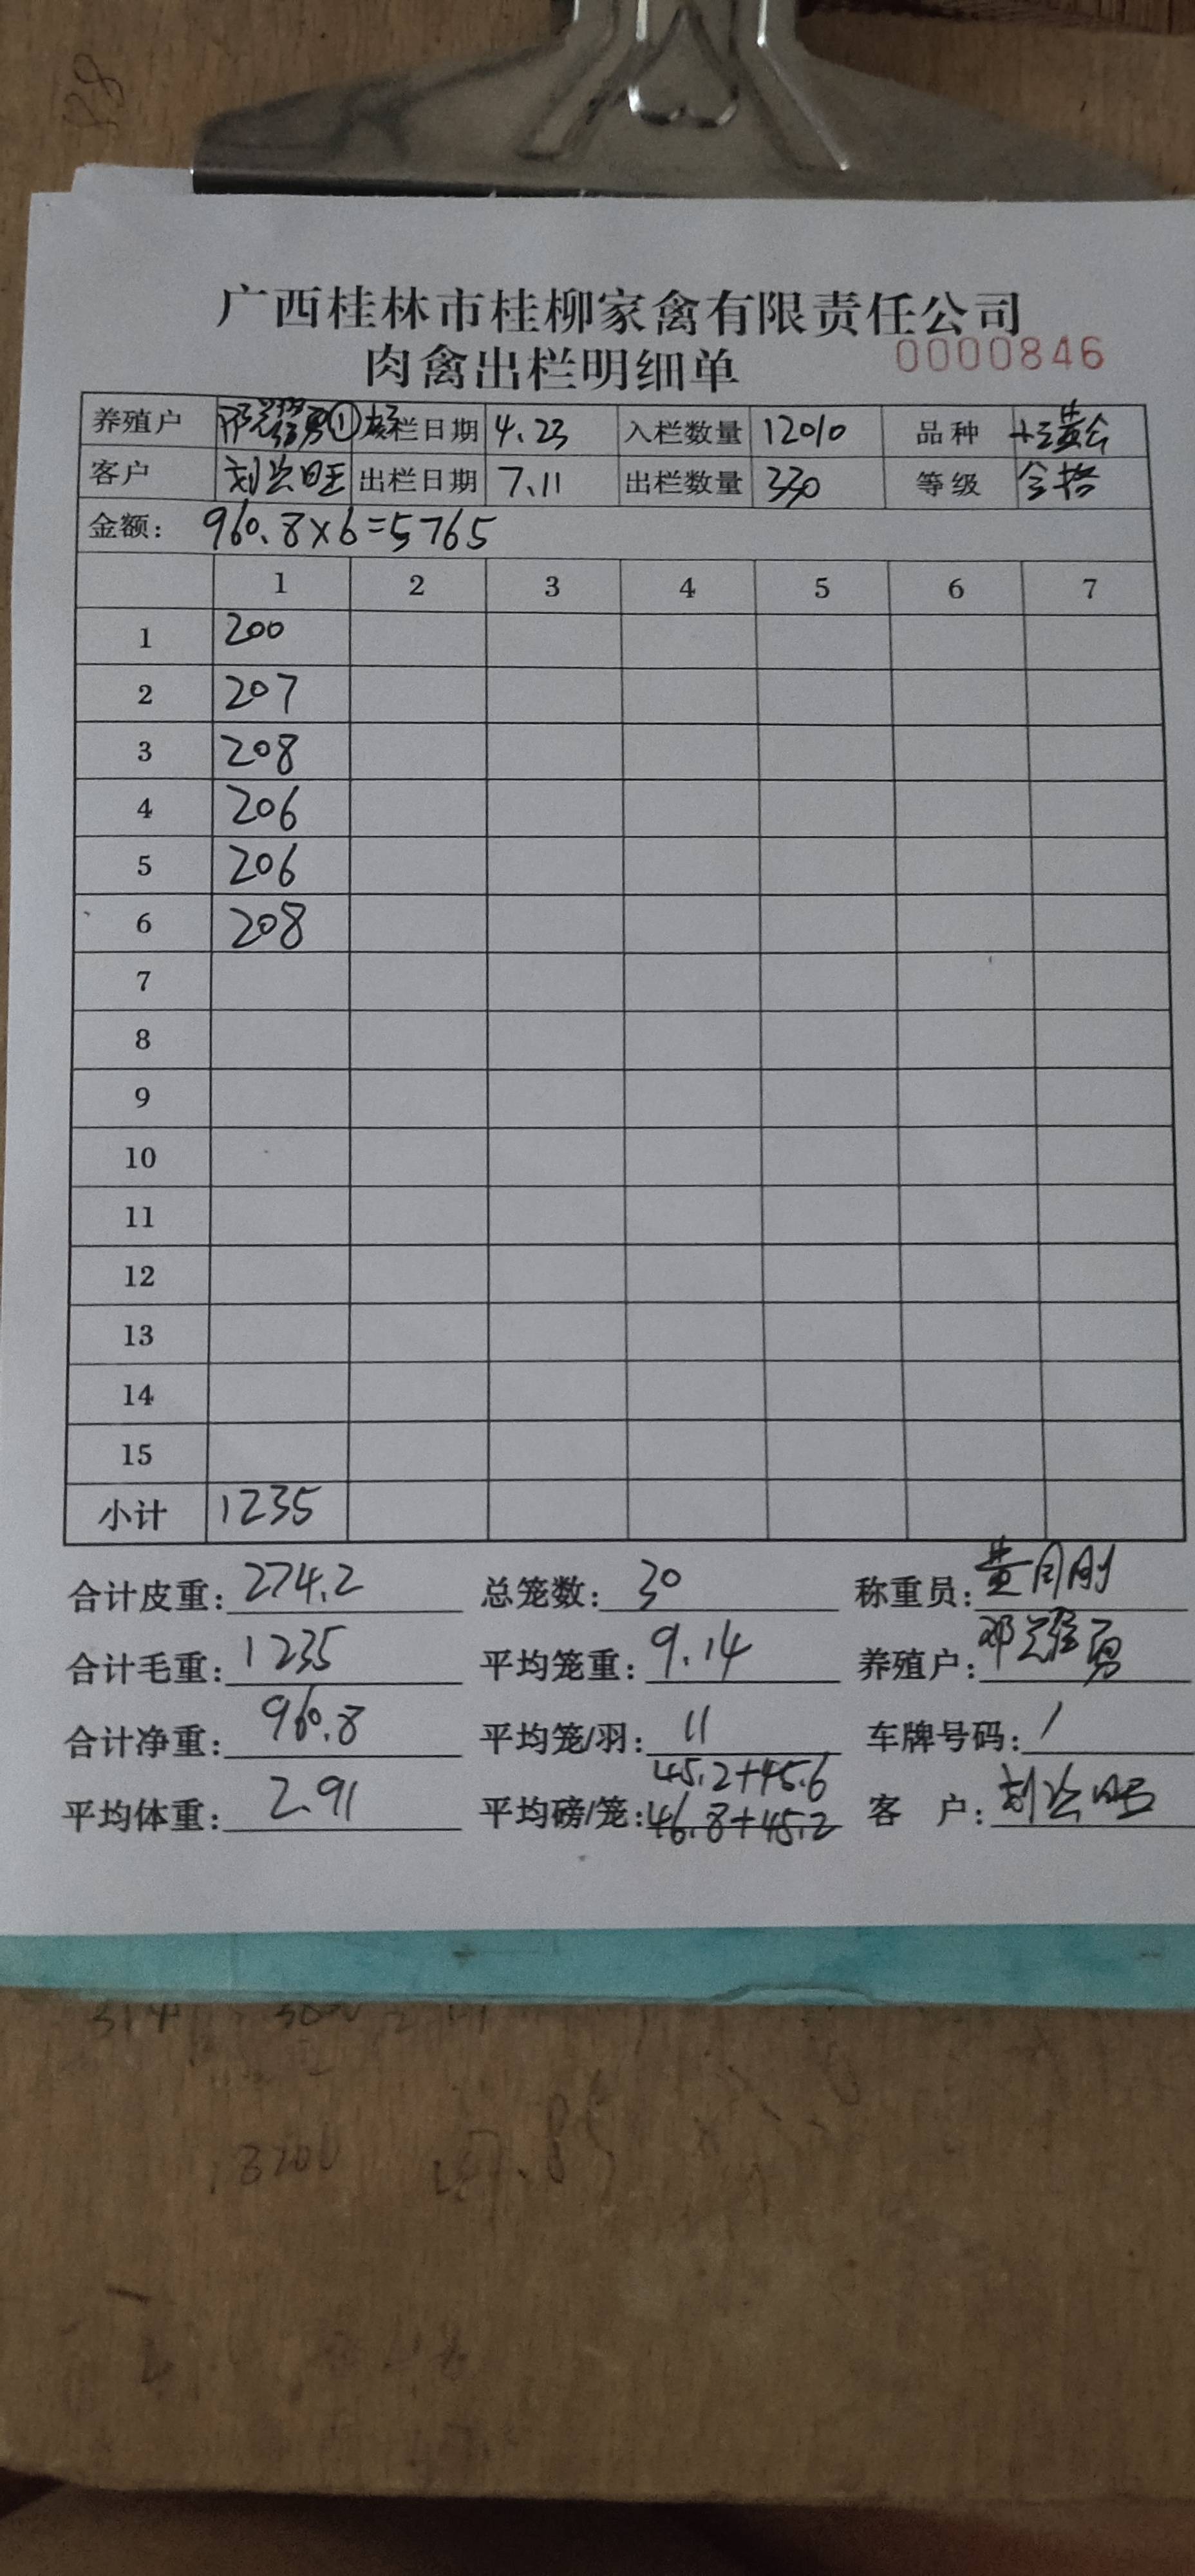 广西桂林市桂柳家禽有限责任公司
肉禽出栏明细单
0000846
养殖户 ① 栏日期 4.23 入栏数量 12010 品种
客户 刘兴旺 出栏日期 7.11 出栏数量 330 等级 合格
金额: 960.8×6=5765
1 2 3 4 5 6 7
1 200
2 207
3 208
4 206
5 206
6 208
7
8
9
10
11
12
13
14
15
小计 1235
合计皮重: 274.2 总笼数: 30 称重员: 黄月刚
合计毛重: 1235 平均笼重: 9.14 养殖户: 邓
合计净重: 960.8 平均笼/羽: 11 车牌号码: /
45.2+45.6
平均体重: 2.91 平均磅/笼: 46.8+45.2 客 户: 刘兴旺
3200